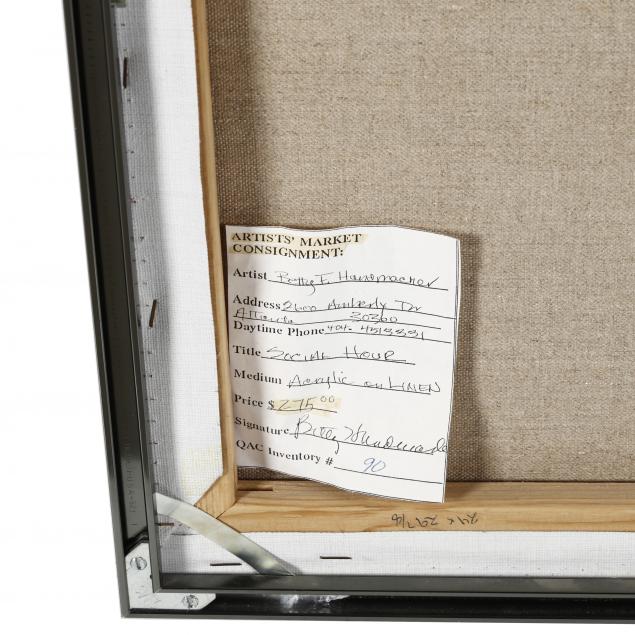 ARTISTS' MARKET
CONSIGNMENT:
Artist Betty F. Handmacher
Address 2600 Amberly Dr
Atlanta 30360
Daytime Phone 404
Title Social Hour
Medium Acrylic on LINEN
Price $275.00
Signature Betty Handmacher
QAC Inventory # 90